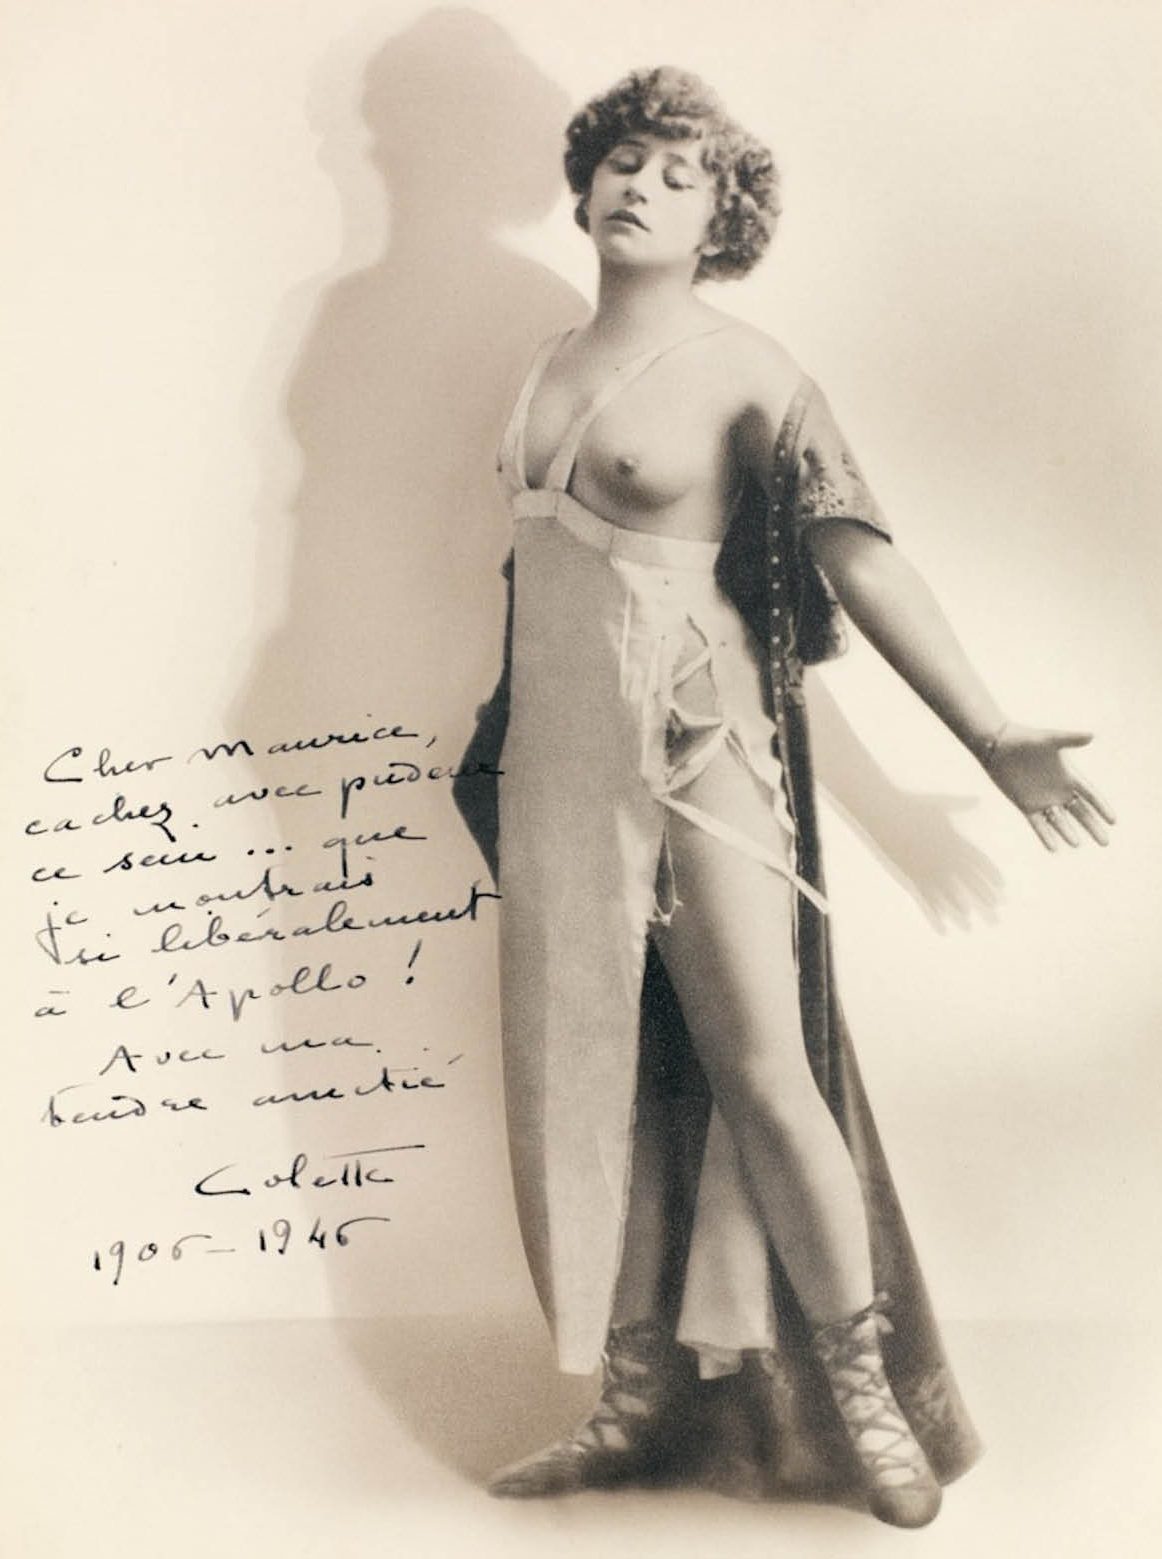 Cher Maurice,
cachez avec pudeur
ce sein ... que
je montrais
si libéralement
à l'Apollo !
Avec ma
tendre amitié
Colette
1906-1946